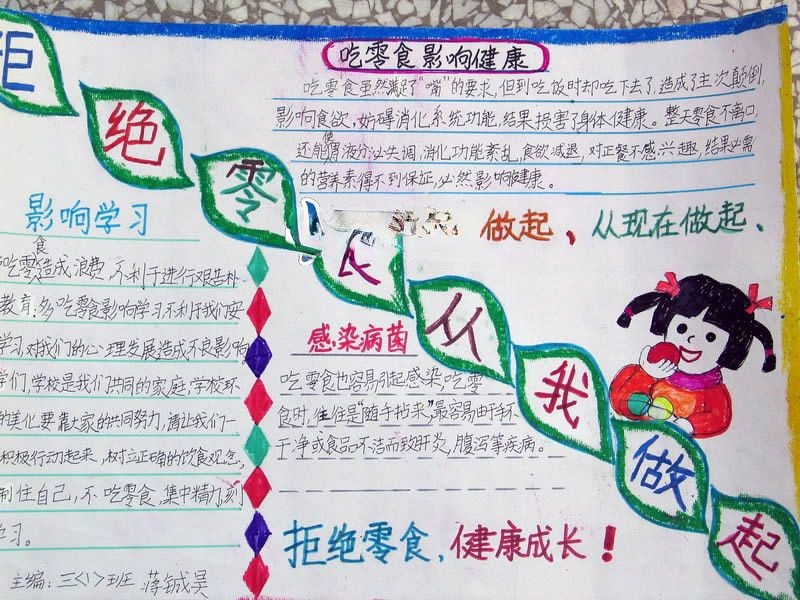 拒绝零食从我做起
吃零食影响健康
吃零食虽然满足了“嘴”的要求,但到吃饭时却吃下去了,造成了主次颠倒,
影响食欲,妨碍消化系统功能,结果损害了身体健康。整天零食不离口,
还能使胃液分必失调,消化功能紊乱,食欲减退,对正餐不感兴趣,结果必需
的营养素得不到保证,必然影响健康。
做起、从现在做起、
影响学习
吃零食造成浪费,不利于进行艰苦朴
教育:多吃零食影响学习,不利于我们安
学习,对我们的心理发展造成不良影响,
学们,学校是我们共同的家庭,学校环
的美化要靠大家的共同努力,请让我们一
积极行动起来,树立正确的饮食观念,
制住自己,不吃零食,集中精力刻
学习。
主编:三〈1〉班
感染病菌
吃零食也容易引起感染,吃零
食时,往往是“随手拈来”,最容易由于不
干净或食品不洁而致肝炎,腹泻等疾病。
拒绝零食,健康成长!